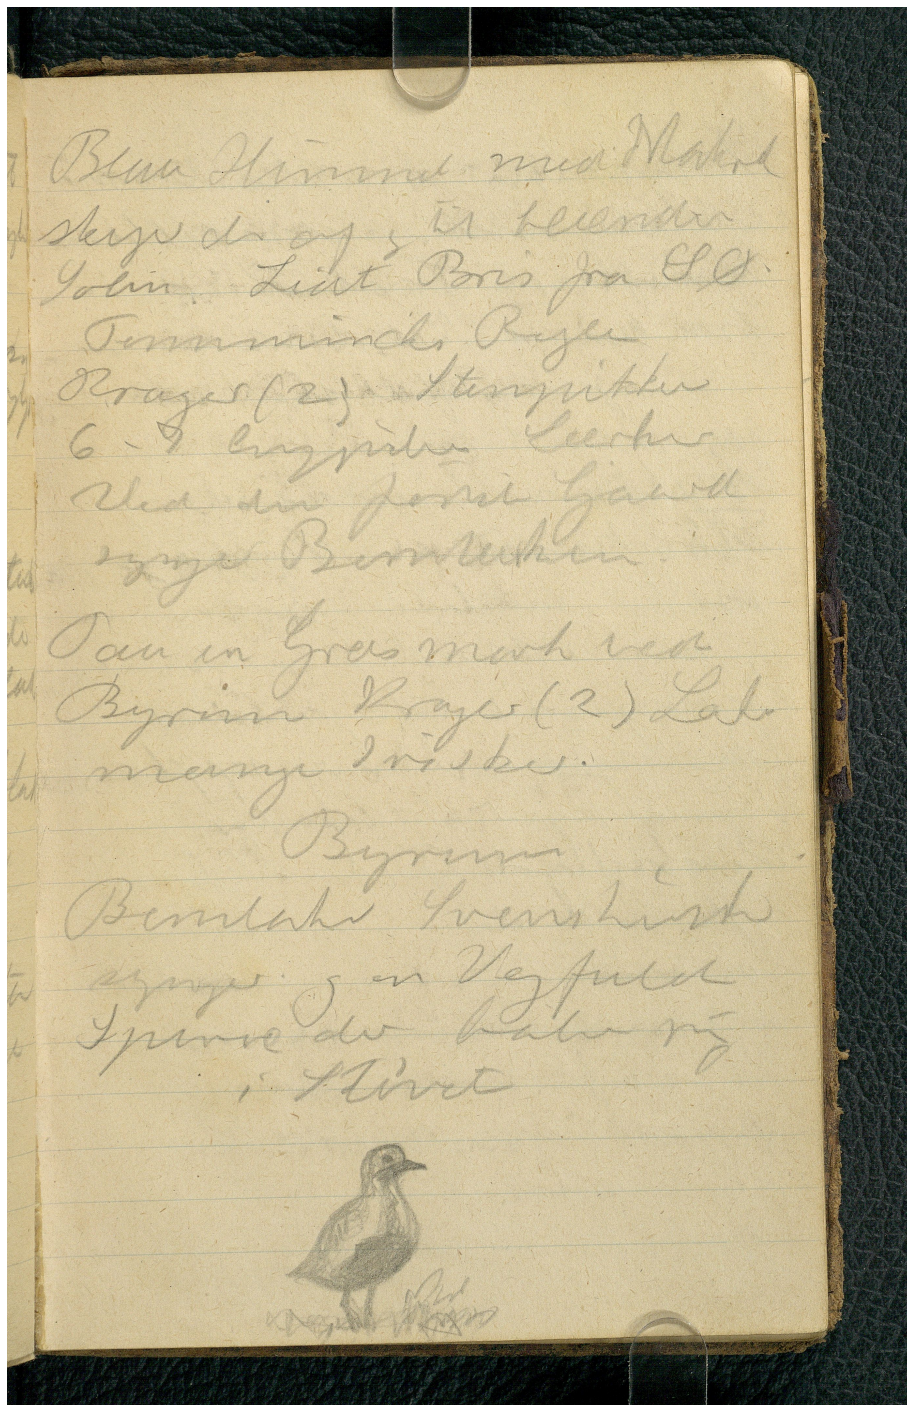 Blaa Himmel med Makrel
skyer der af og til blænder
Solen. Lidt Bris fra S Ø.
Temmincks Ryle
Krager (2) Stenpikker
6 - 7 Engpiber Lærker
Ved den første Gaard
synger Bomlærken
Paa en Græsmark ved
Byrum Krager (2)
mange Irisker.
Byrum
Bomlærke Svenskirisk
synger. og en Vejfuld
Spurve der bader sig
i Støvet